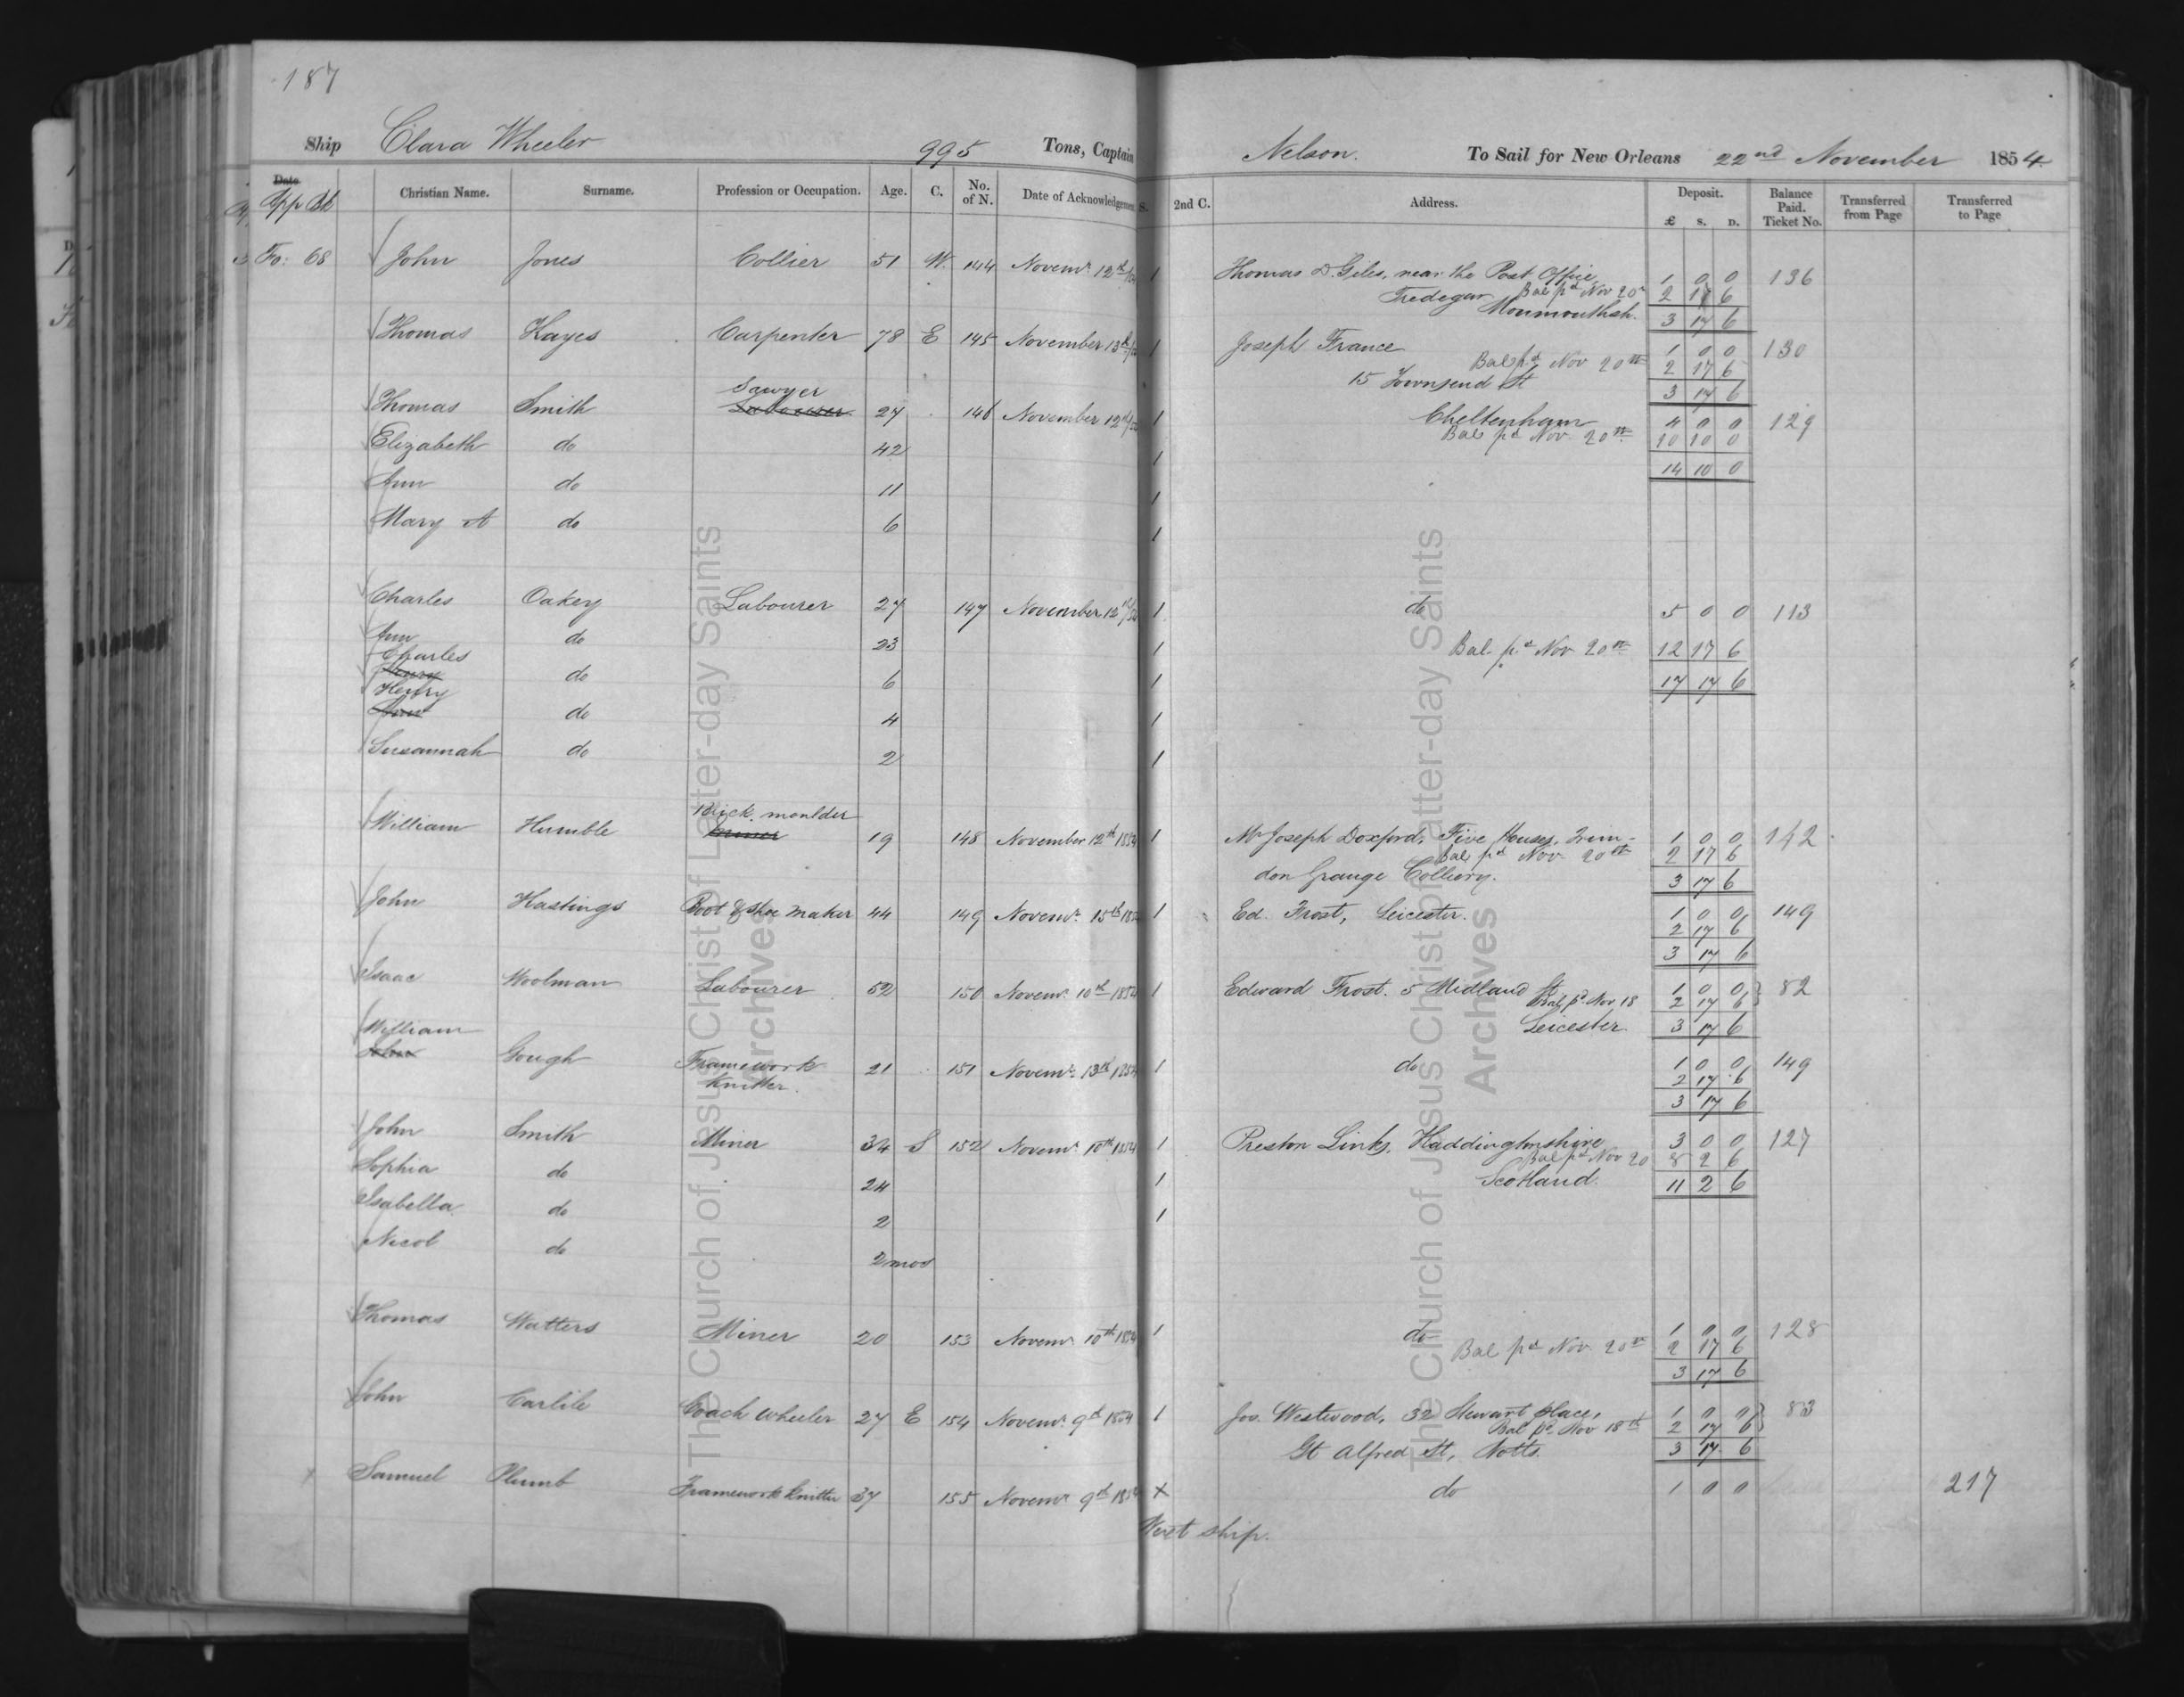 187
Ship Clara Wheeler 995 Tons, Captain Nelson. To Sail for New Orleans 22nd November 1854
Date
App Bk Christian Name. Surname. Profession or Occupation. Age. C. No. of N. Date of Acknowledgement S. 2nd C. Address. Deposit. £ s. D. Balance Paid. Ticket No. Transferred from Page Transferred to Page
Fo: 68 John Jones Collier 51 W. 144 Novemr 12th/54 1 Thomas D. Giles, near the Post Office, 1 0 0 136
Tredegar Bal pd Nov 20th 2 17 6
Monmouthsh. 3 17 6
Thomas Hayes Carpenter 78 E 145 November 13th/54 1 Joseph France 1 0 0 130
Bal pd Nov 20th 2 17 6
15 Townsend St 3 17 6
Sawyer
Thomas Smith Labourer 27 146 November 12th/54 1 Cheltenham 4 0 0 129
Elizabeth do 42 1 Bal pd Nov. 20th 10 10 0
14 10 0
Ann do 11 1
Mary A do 6 1
Charles Oakey Labourer 27 147 November 12th/54 1 do 5 0 0 113
Ann do 23 1 Bal. pd Nov 20th 12 17 6
Charles
Henry do 6 1 17 17 6
Henry
Ann do 4 1
Susannah do 2 1
Brick moulder
William Humble 19 148 November 12th 1854 1 Mr Joseph Doxford, Five Houses, Trim- 1 0 0 142
Bal pd Nov 20th 2 17 6
don Grange Colliery. 3 17 6
John Hastings Boot & Shoe Maker 44 149 Novemr 15th 1854 1 Ed. Frost, Leicester. 1 0 0 149
2 17 6
3 17 6
Isaac Woolman Labourer 52 150 Novemr 10th 1854 1 Edward Frost. 5 Midland St 1 0 0 82
Bal pd Nov 18 2 17 6
Leicester. 3 17 6
William
John Gough Framework Knitter. 21 151 Novemr 13th 1854 1 do 1 0 0 149
2 17 6
3 17 6
John Smith Miner 34 S 152 Novemr 10th 1854 1 Preston Links, Haddingtonshire 3 0 0 127
Bal pd Nov 20 8 2 6
Sophia do 24 1 Scotland. 11 2 6
Isabella do 2 1
Nicol do 2 mos
Thomas Watters Miner 20 153 Novemr 10th 1854 1 do 1 0 0 128
Bal pd Nov. 20th 2 17 6
3 17 6
John Carlile Coach Wheeler 27 E 154 Novemr 9th 1854 1 Jos. Westwood, 32 Stewart place, 1 0 0 83
Bal pd Nov 18th 2 17 6
Gt Alfred St, Notts. 3 17 6
Samuel Plumb Framework Knitter 37 155 Novemr 9th 1854 x do 1 0 0 217
Next ship.
The Church of Jesus Christ of Latter-day Saints
Archives
The Church of Jesus Christ of Latter-day Saints
Archives